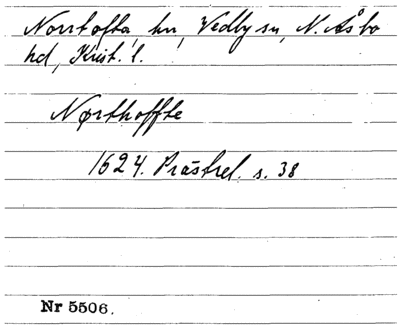 Norrtofta, hn, Vedby sn, N. Åsbo
hd, Krist. l.
Nørthoffte
1624. Prästrel. s. 38
Nr 5506.